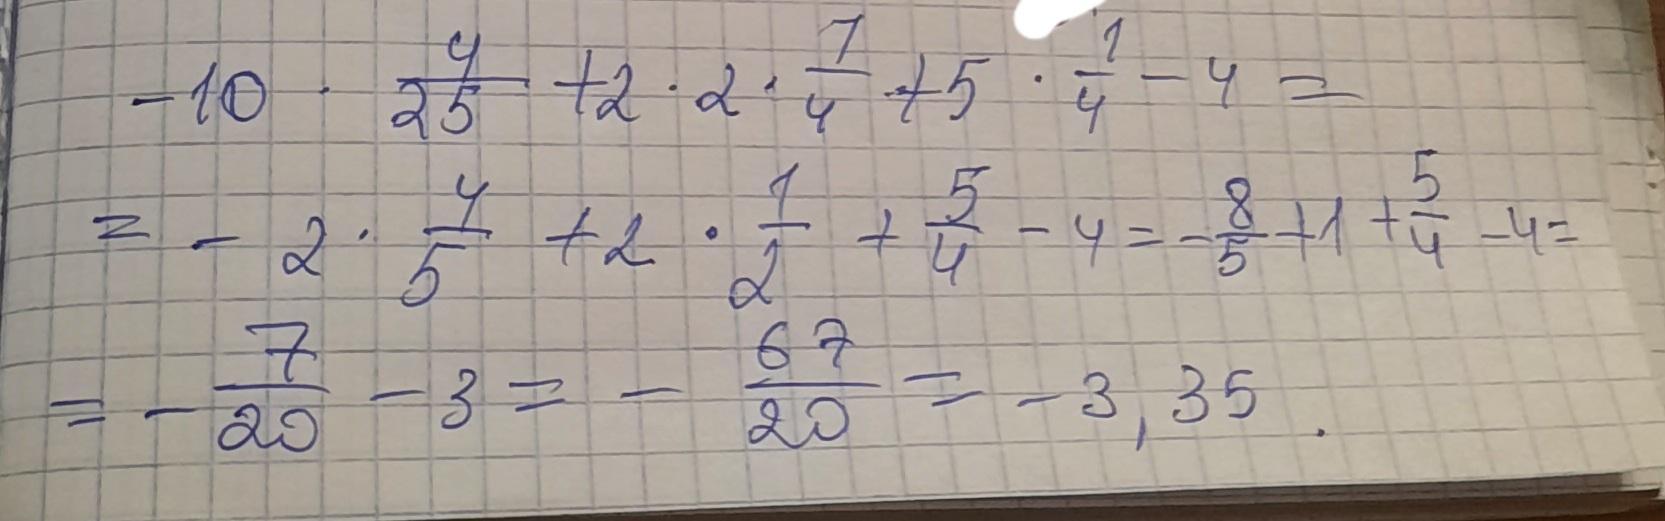 -10 · 4/25 + 2 · 2 · 1/4 + 5 · 1/4 - 4 =
= - 2 · 4/5 + 2 · 1/2 + 5/4 - 4 = - 8/5 + 1 + 5/4 - 4 =
= - 7/20 - 3 = - 67/20 = - 3,35.